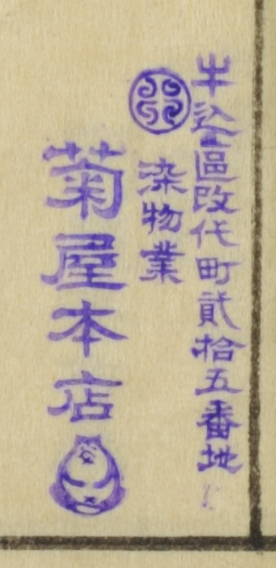 牛込區改代町貳拾五番地
染物業
菊屋本店